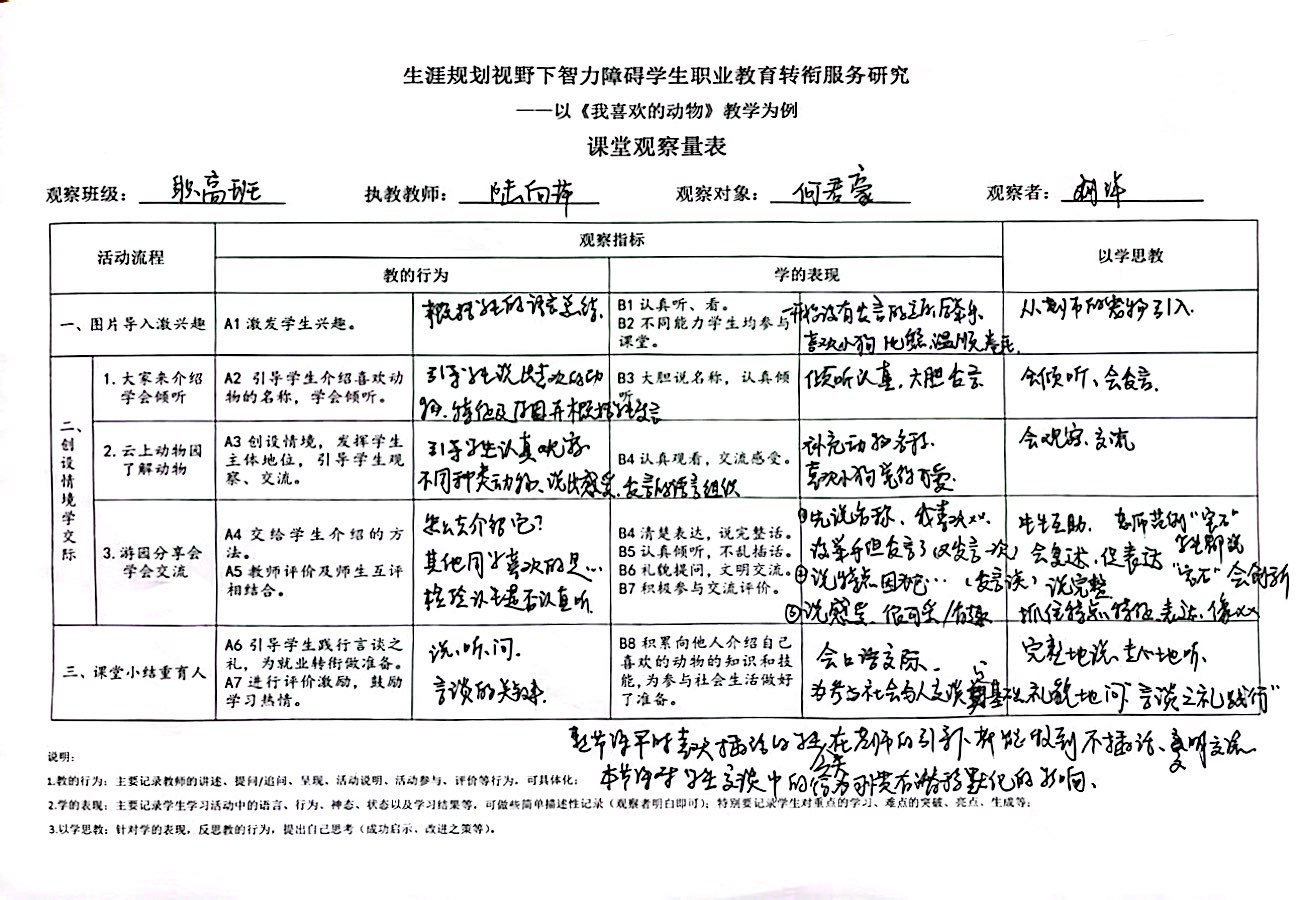 生涯规划视野下智力障碍学生职业教育转衔服务研究
——以《我喜欢的动物》教学为例
课堂观察量表
观察班级： 职高班 执教教师： 陆向萍 观察对象： 何君豪 观察者：
活动流程 观察指标 以学思教
教的行为 学的表现
一、图片导入激兴趣
A1 激发学生兴趣。
概括学生的语言总结.
B1 认真听、看。
B2 不同能力学生均参与
课堂。
一开始没有发言
喜欢小狗 比熊.温顺
引入.
二、创设情境学交际
1. 大家来介绍
学会倾听
A2 引导学生介绍喜欢动
物的名称，学会倾听。
引导学生说出喜欢的动
物.特征及原因并概括学生发言
B3 大胆说名称，认真倾
听。
倾听认真，大胆发言
会倾听、会发言.
2. 云上动物园
了解动物
A3 创设情境，发挥学生
主体地位，引导学生观
察、交流。
引导学生认真观察
不同种类动物、说出感受.发言的语言组织
B4 认真观看，交流感受。
补充动物名称.
喜欢小狗觉得可爱.
会观察.交流
3. 游园分享会
学会交流
A4 交给学生介绍的方
法。
A5 教师评价及师生互评
相结合。
怎么去介绍它？
其他同学喜欢的是…
检验学生是否认真听.
B4 清楚表达，说完整话。
B5 认真倾听，不乱插话。
B6 礼貌提问，文明交流。
B7 积极参与交流评价。
①先说名称、我喜欢xx.
没举手但发言了(仅发言一次)
说特点因为它…
说感受 很可爱/有趣
生生互助.
会复述.但表达
说完整
抓住特点特征表达.像xx
三、课堂小结重育人
A6 引导学生践行言谈之
礼，为就业转衔做准备。
A7 进行评价激励，鼓励
学习热情。
说、听、问.
言谈的
B8 积累向他人介绍自己
喜欢的动物的知识和技
能，为参与社会生活做好
了准备。
会口语交际、
为参与社会与人交谈奠基
完整地说、走心地听、
礼貌地问"言谈之礼践行"
整节课平时喜欢插话的学生在老师的引导下都能做到不插话、文明交流.
本节课对学生交谈中的行为举止有潜移默化的影响、
说明：
1.教的行为：主要记录教师的讲述、提问/追问、呈现、活动说明、活动参与、评价等行为，可具体化；
2.学的表现：主要记录学生学习活动中的语言、行为、神态、状态以及学习结果等，可做些简单描述性记录（观察者明白即可）；特别要记录学生对重点的学习、难点的突破、亮点、生成等；
3.以学思教：针对学的表现，反思教的行为，提出自己思考（成功启示、改进之策等）。